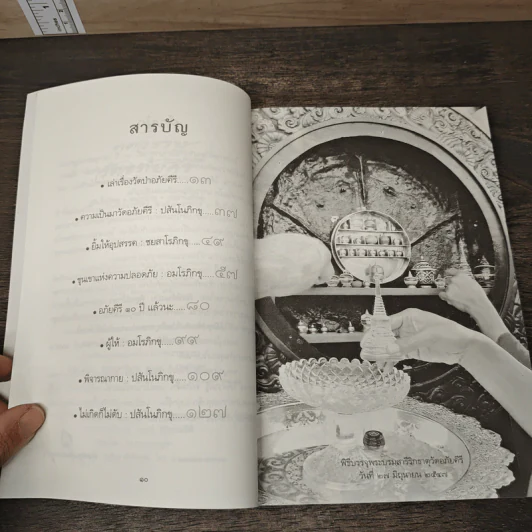 สารบัญ
• เล่าเรื่องวัดป่าอภัยคีรี.....๑๓
• ความเป็นมาวัดอภัยคีรี : ปสันโนภิกขุ.....๓๗
• ยิ้มให้อุปสรรค : ชยสาโรภิกขุ.....๔๙
• ขุนเขาแห่งความปลอดภัย : อมโรภิกขุ.....๕๗
• อภัยคีรี ๑๐ ปี แล้วนะ.....๘๐
• ผู้ให้ : อมโรภิกขุ.....๙๙
• พิจารณากาย : ปสันโนภิกขุ.....๑๐๙
• ไม่เกิดก็ไม่ดับ : ปสันโนภิกขุ.....๑๒๗
๑๐
พิธีบรรจุพระบรมสารีริกธาตุวัดอภัยคีรี
วันที่ ๒๗ มิถุนายน